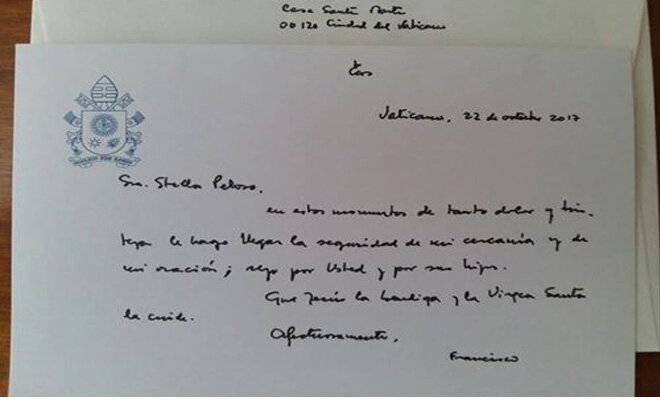 Casa Santa Marta
00120 Ciudad del Vaticano
Vaticano, 22 de octubre 2017
Sra. Stella Peloso,
en estos momentos de tanto dolor y tris-
teza le hago llegar la seguridad de mi cercanía y de
mi oración; rezo por Usted y por sus hijos.
Que Jesús la bendiga y la Virgen Santa
la cuide.
Afectuosamente,
Francisco